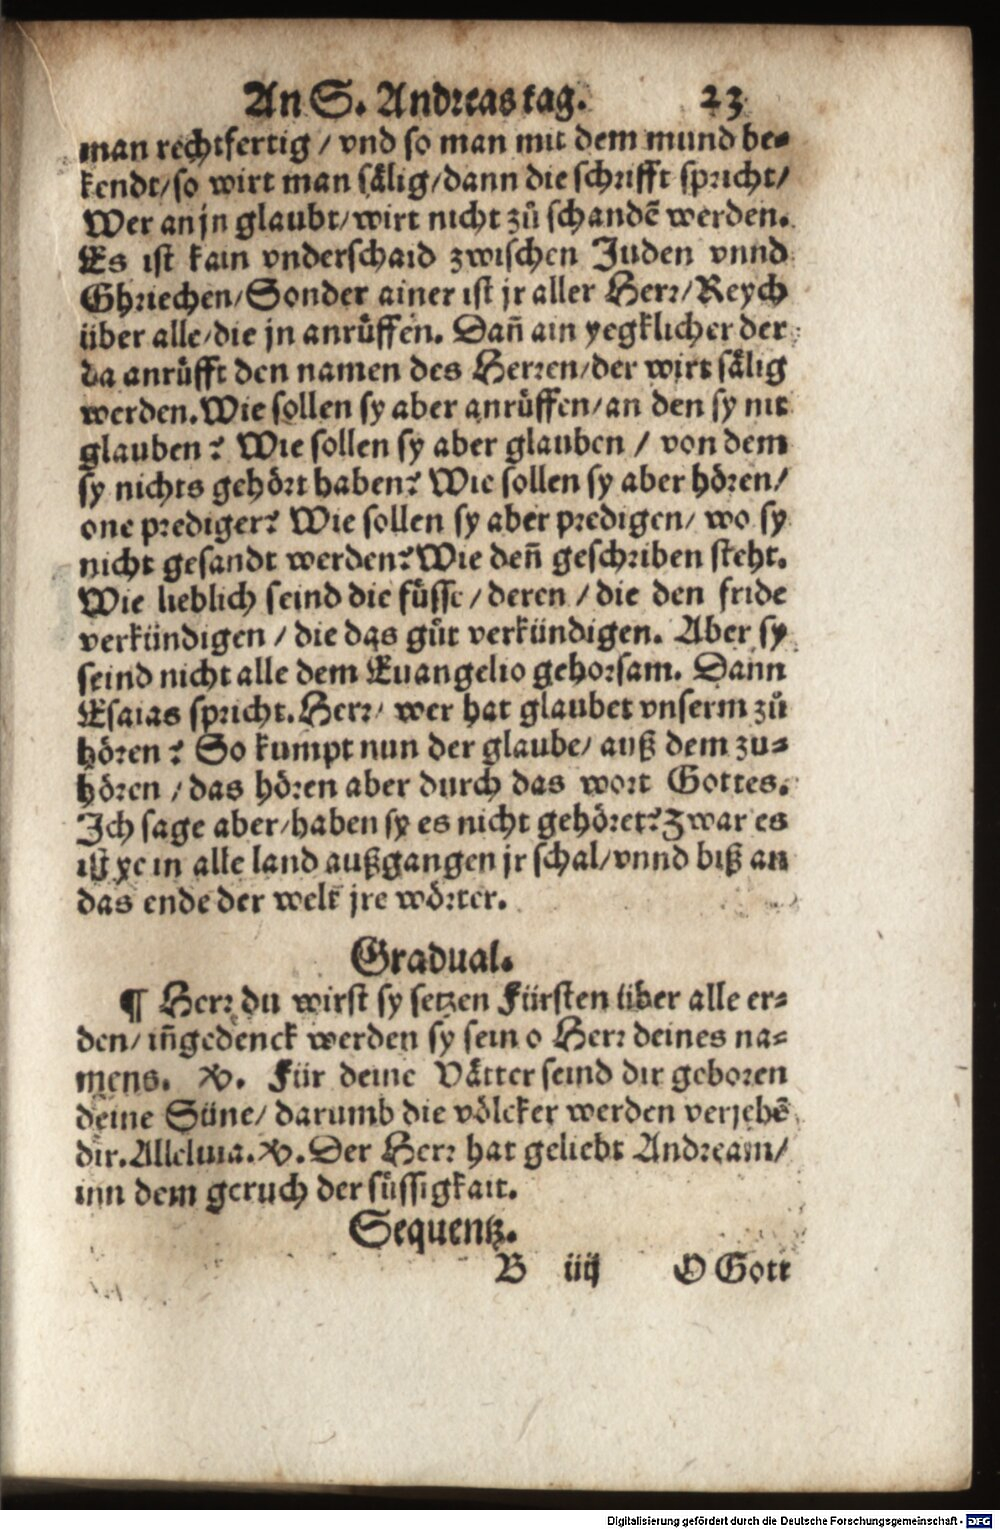 An S. Andreas tag. 23
man rechtfertig / vnd so man mit dem mund be⸗
kendt/so wirt man sälig/dann die schrifft spricht/
Wer an jn glaubt/wirt nicht zů schandē werden.
Es ist kain vnderschaid zwischen Juden vnnd
Ghriechen/Sonder ainer ist jr aller Herr/Reych
über alle/die jn anrůffen. Dañ ain yegklicher der
da anrůfft den namen des Herren/der wirt sälig
werden.Wie sollen sy aber anrůffen/an den sy nit
glauben? Wie sollen sy aber glauben / von dem
sy nichts gehört haben? Wie sollen sy aber hören/
one prediger? Wie sollen sy aber predigen/ wo sy
nicht gesandt werden?Wie deñ geschriben steht.
Wie lieblich seind die fůsse/deren/die den fride
verkündigen / die das gůt verkündigen. Aber sy
seind nicht alle dem Euangelio gehorsam. Dann
Esaias spricht.Herr/ wer hat glaubet vnserm zů
hören? So kumpt nun der glaube/ auß dem zu⸗
hören / das hören aber durch das wort Gottes.
Ich sage aber/haben sy es nicht gehöret?Zwar es
ist ye in alle land außgangen jr schal/vnnd biß an
das ende der welt jre wörter.
Gradual.
¶ Herr du wirst sy setzen Fürsten über alle er⸗
den/ iñgedenck werden sy sein o Herr deines na⸗
mens. ℣. Für deine Vätter seind dir geboren
deine Süne/ darumb die völcker werden verjehē
dir.Alleluia.℣.Der Herr hat geliebt Andream/
inn dem geruch der sůssigkait.
Sequentz.
B iiij O Gott
Digitalisierung gefördert durch die Deutsche Forschungsgemeinschaft - DFG